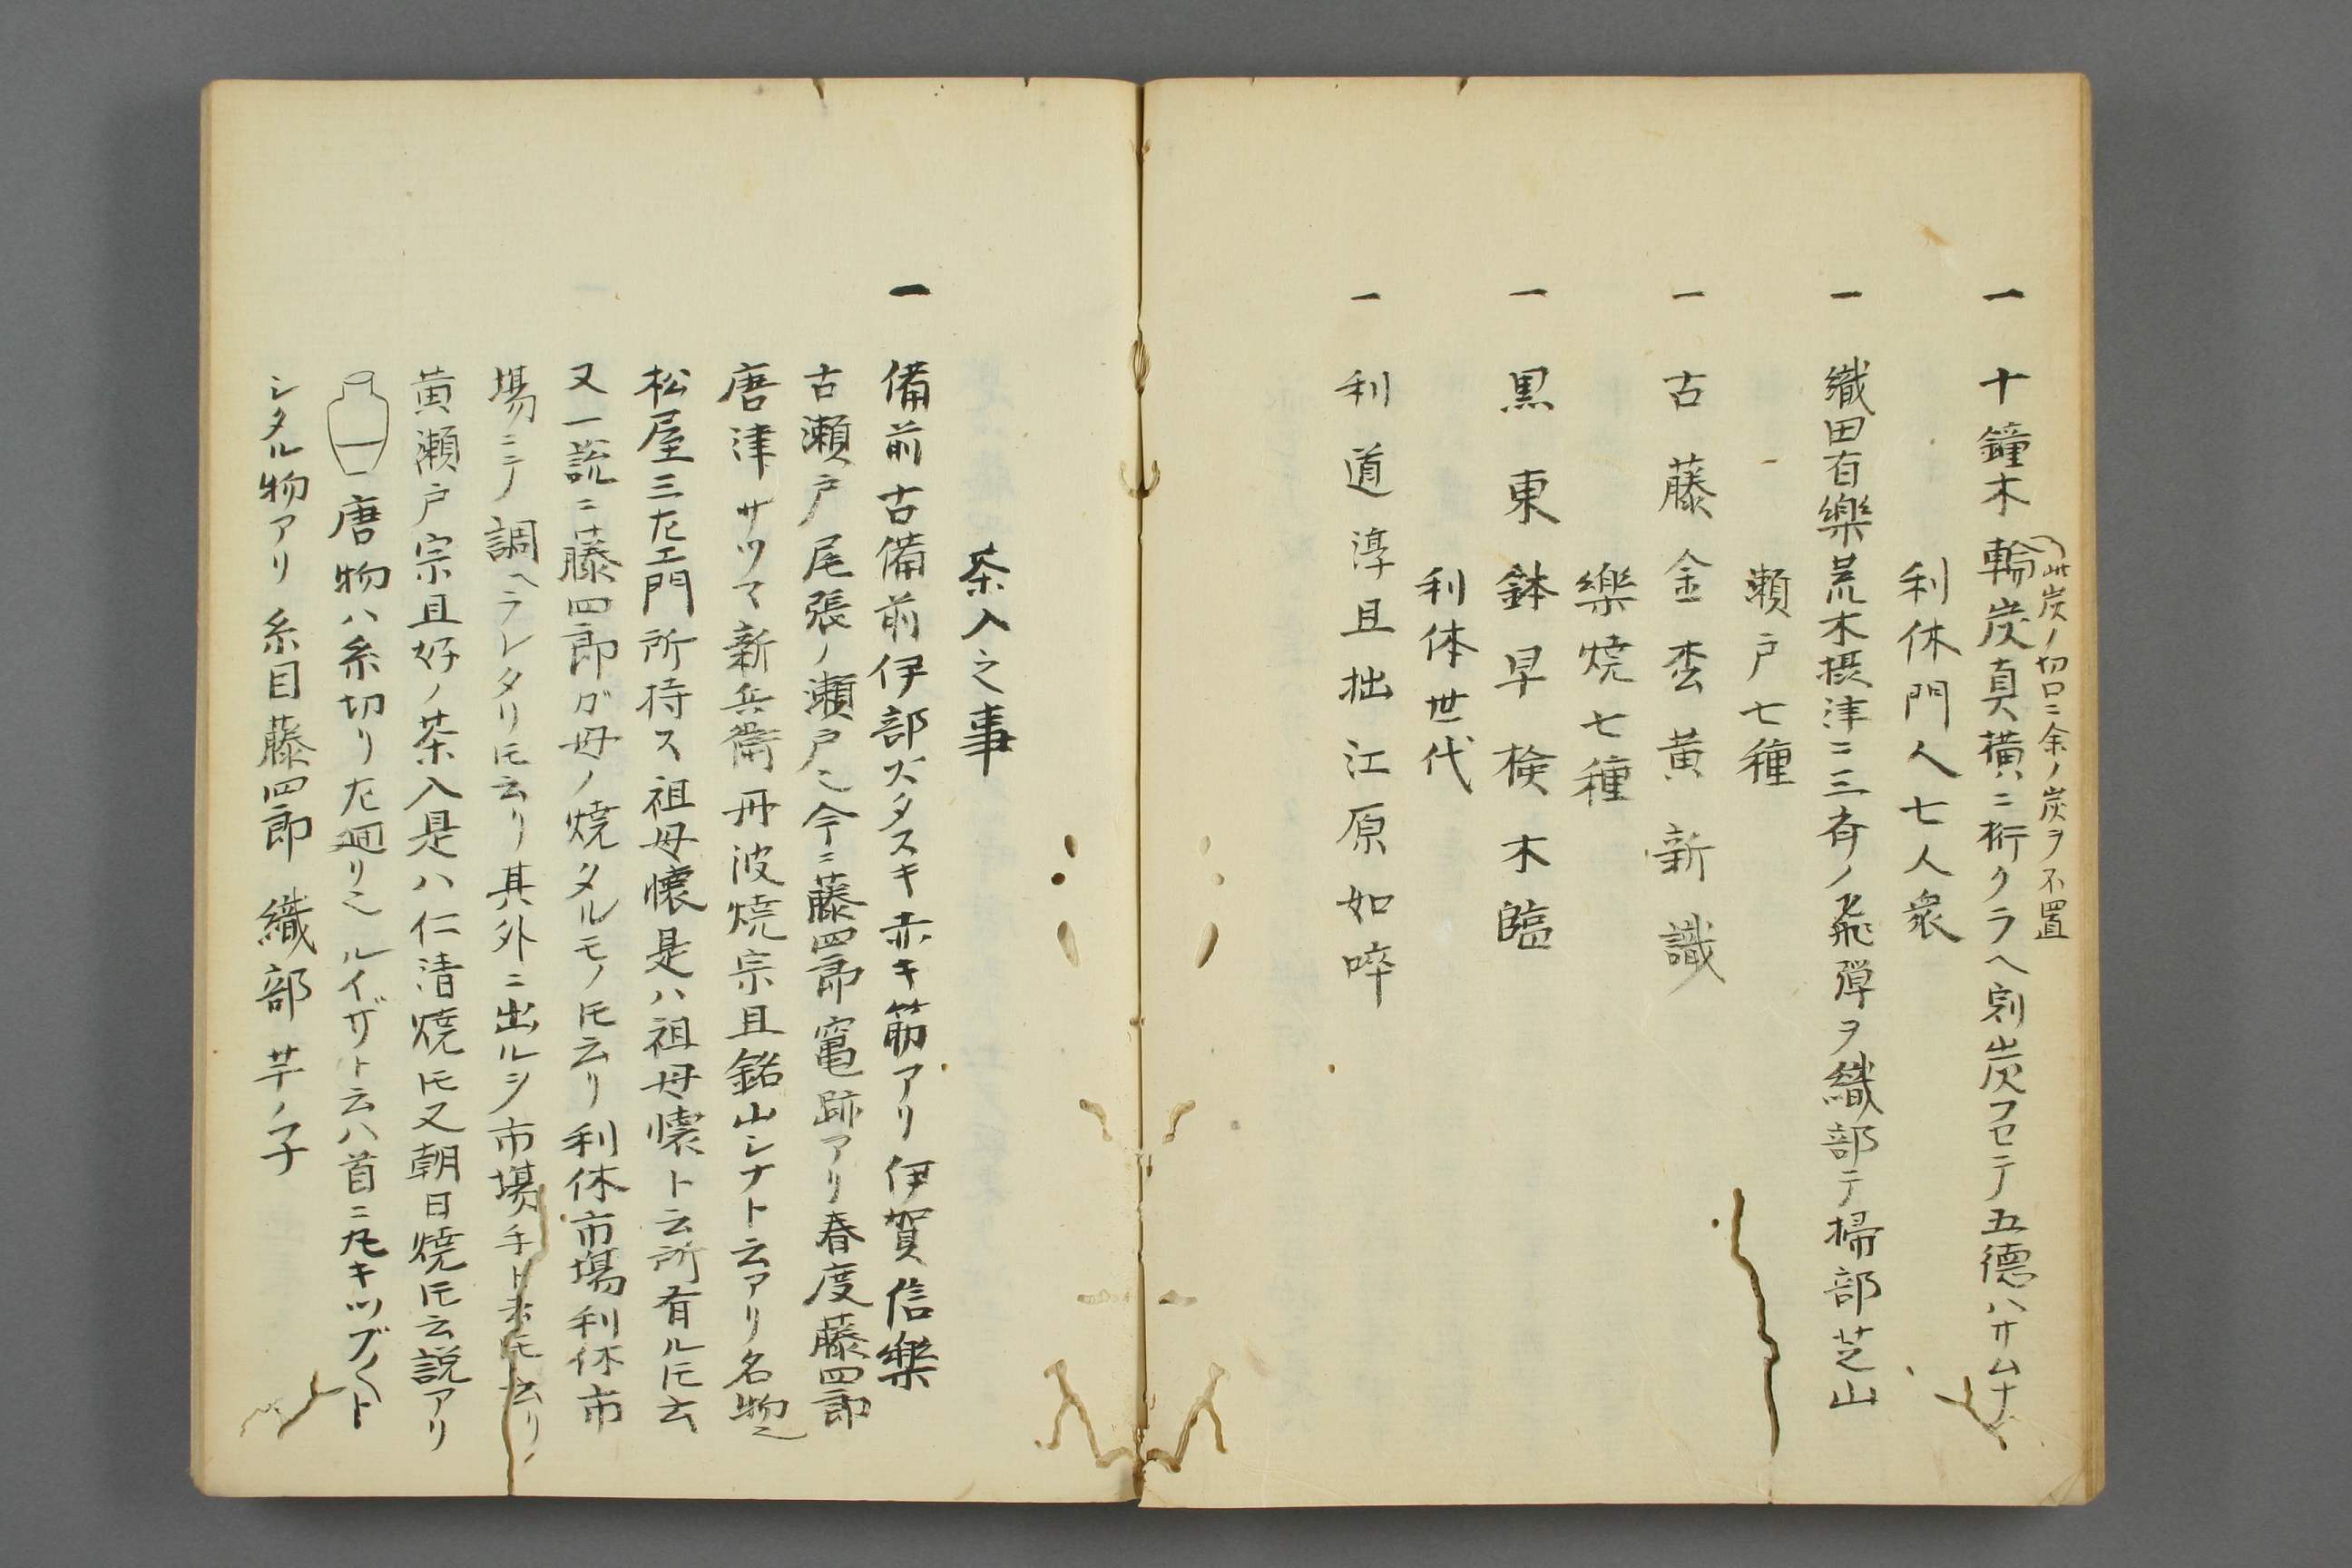 一 十鐘木輪炭真横ニ桁クラヘ割炭フセテ五德ハサムナ
此炭ノ切口ニ余ノ炭ヲ不置
利休門人七人衆
一 織田有樂荒木摂津ニ三斉ノ飛弾ヲ織部テ掃部芝山
瀬戸七種
一 古藤金盃黄新識
樂焼七種
一 黒東鉢早検木臨
利休世代
一 利道淳旦拙江原如啐
茶入之事
一 備前古備前伊部火タスキ赤キ筋アリ伊賀信樂
古瀬戸尾張ノ瀬戸也今ニ藤四郎竃跡アリ春度藤四郎
唐津サツマ新兵衛丹波焼宗旦銘山シナト云アリ名物也
松屋三左エ門所持ス祖母懐是ハ祖母懐ト云所有ル𪜈云
又一説ニ藤四郎ガ母ノ焼タルモノ𪜈云リ利休市場利休市
場ニテ調ヘラレタリ𪜈云リ其外ニ出ルシ市場手ト云𪜈云リ
黄瀬戸宗旦好ノ茶入是ハ仁清焼𪜈又朝日焼𪜈云説アリ
唐物ハ糸切リ左廻リ也ルイザト云ハ首ニ丸キツブ〱ト
シタル物アリ糸目藤四郎織部芋ノ子